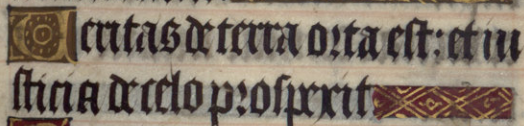 Veritas de terra orta est: et iu
sticia de celo prospexit